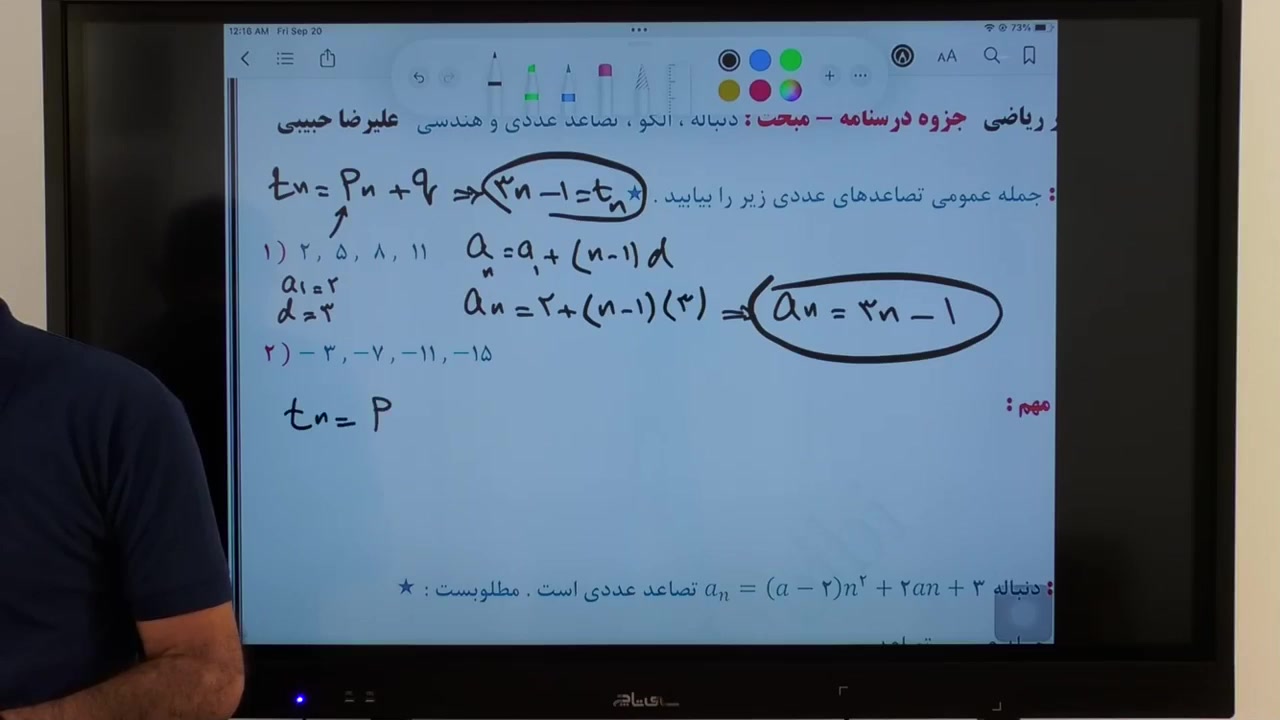 12:16 AM Fri Sep 20
73%
AA
ر ریاضی جزوه درسنامه – مبحث : دنباله ، الگو ، تصاعد عددی و هندسی علیرضا حبیبی
: جمله عمومی تصاعدهای عددی زیر را بیابید . ★
tn = Pn + q ⇒ ۳n − ۱ = tn
۱) ۲, ۵, ۸, ۱۱
an = a۱ + (n−۱)d
a۱ = ۲
d = ۳
an = ۲ + (n−۱)(۳) ⇒ an = ۳n − ۱
۲) −۳, −۷, −۱۱, −۱۵
tn = P
مهم :
: دنباله aₙ = (a − ۲)n^۲ + ۲an + ۳ تصاعد عددی است . مطلوبست : ★